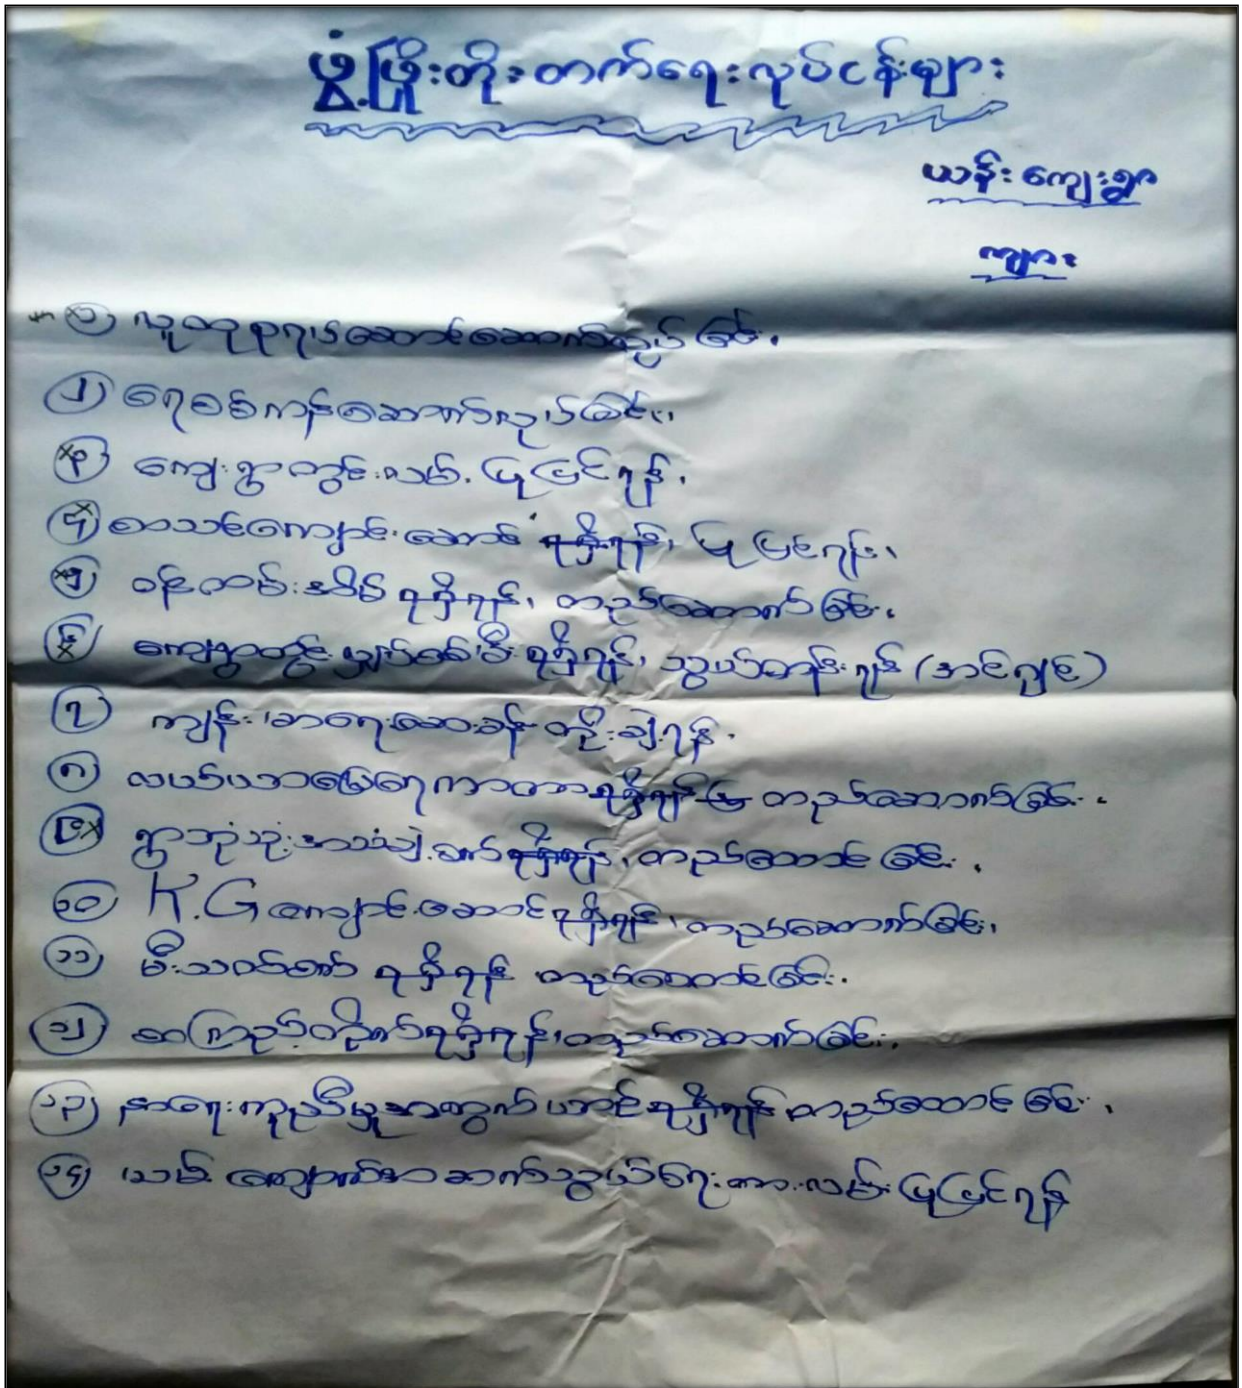 ဖွံ့ဖြိုးတိုးတက်ရေးလုပ်ငန်းများ
ယန်းကျေးရွာ
ကျား
၁ လူထုစုရပ်ဆောင်ဆောက်လုပ်ခြင်း၊
၂ ရေစစ်ကန်ဆောက်လုပ်ခြင်း၊
၃ ကျေးရွာတွင်းလမ်း ပြုပြင်ရန်၊
၄ စာသင်ကျောင်းဆောင် ရရှိရန်၊ ပြုပြင်ရန်၊
၅ ဝန်ထမ်းအိမ် ရရှိရန်၊ တည်ဆောက်ခြင်း၊
၆ ကျေးရွာတွင်း လျှပ်စစ်မီး ရရှိရန်၊ သွယ်တန်းရန် (အင်ဂျင်)
၇ ကျန်းမာရေးဆေးခန်း တိုးချဲ့ရန်၊
၈ လယ်ယာမြေရေကာတာ ရရှိရန် တည်ဆောက်ခြင်း၊
၉ ရွာဘုံသုံးအသံချဲ့စက် ရရှိရန်၊ တည်ထောင်ခြင်း၊
၁၀ K.G ကျောင်းဆောင်ရရှိရန်၊ တည်ဆောက်ခြင်း၊
၁၁ မီးသတ်စက် ရရှိရန် တည်ထောင်ခြင်း၊
၁၂ စာကြည့်တိုက်ရရှိရန်၊ တည်ဆောက်ခြင်း၊
၁၃ နာရေးကူညီမှုအတွက် ယာဉ် ရရှိရန် တည်ထောင်ခြင်း၊
၁၄ ဆက်သွယ်ရေးကားလမ်း ပြုပြင်ရန်